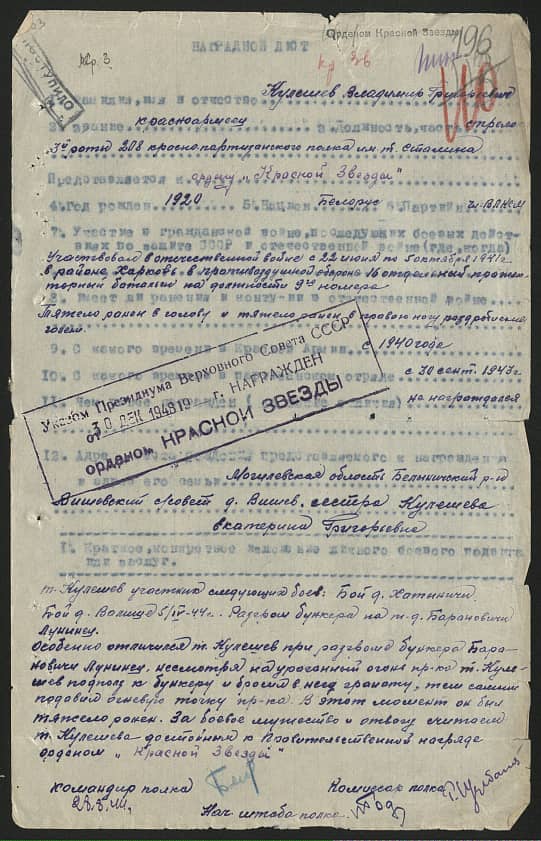 Орденом Красной Звезды
196
кр 36
НАГРАДНОЙ ЛИСТ
ПОСТУПИЛО
кр. 3
1. Фамилия, имя и отчество Кулешев Владимир Григорьевич
2. Звание красноармеец 3. Должность, часть стрелок
3й роты 208 красно-партизанского полка им т. Сталина
Представляется к ордену „Красной Звезды"
4. Год рожден. 1920 5. Национ. Белорус 6. Партийн. чл. ВЛКСМ
7. Участие в гражданской войне, последующих боевых дейст-
виях по защите СССР и отечественной войне (где, когда)
Участвовал в отечественной войне с 22 июня по 5 октября 1941 г
в районе Харьков в противовоздушной обороне 16 отдельный прожек-
торный батальон на должности 9го номера
8. Имеет ли ранения и контузии в отечественной войне
Тяжело ранен в голову и тяжело ранен в правою ногу
9. С какого времени в Красной Армии с 1940 года
10. С какого времени в партизанском отряде с 30 сент. 1943 г
11. Чем ранее награжден не награждался
Указом Президиума Верховного Совета СССР
от 30 ДЕК 1948 19 г. НАГРАЖДЕН
орденом КРАСНОЙ ЗВЕЗДЫ
12. Адрес представляемого к награждению
и адрес его семьи
Могилевская область Белыничский р-н
Вишовский с/совет д. Вишов, сестра Кулешева
Екатерина Григорьевна
1. Краткое, конкретное изложение личного боевого подвига
или заслуг.
т. Кулешев участник следующих боев: Бой д. Хатыничи
Бой д. Волище 5/IV-44 г. Разгром бункера на ж-д Барановичи
Лунинец.
Особенно отличился т. Кулешев при разгроме бункера Бара-
новичи Лунинец, несмотря на ураганный огонь пр-ка т. Куле-
шев подполз к бункеру и бросил в него гранату, тем самым
подавил огневую точку пр-ка. В этот момент он был
тяжело ранен. За боевое мужество и отвагу считаем
т. Кулешева достойным к Правительственной награде
орденом „Красной Звезды"
Командир полка Комиссар полка
23.5.44.
Нач. штаба полка